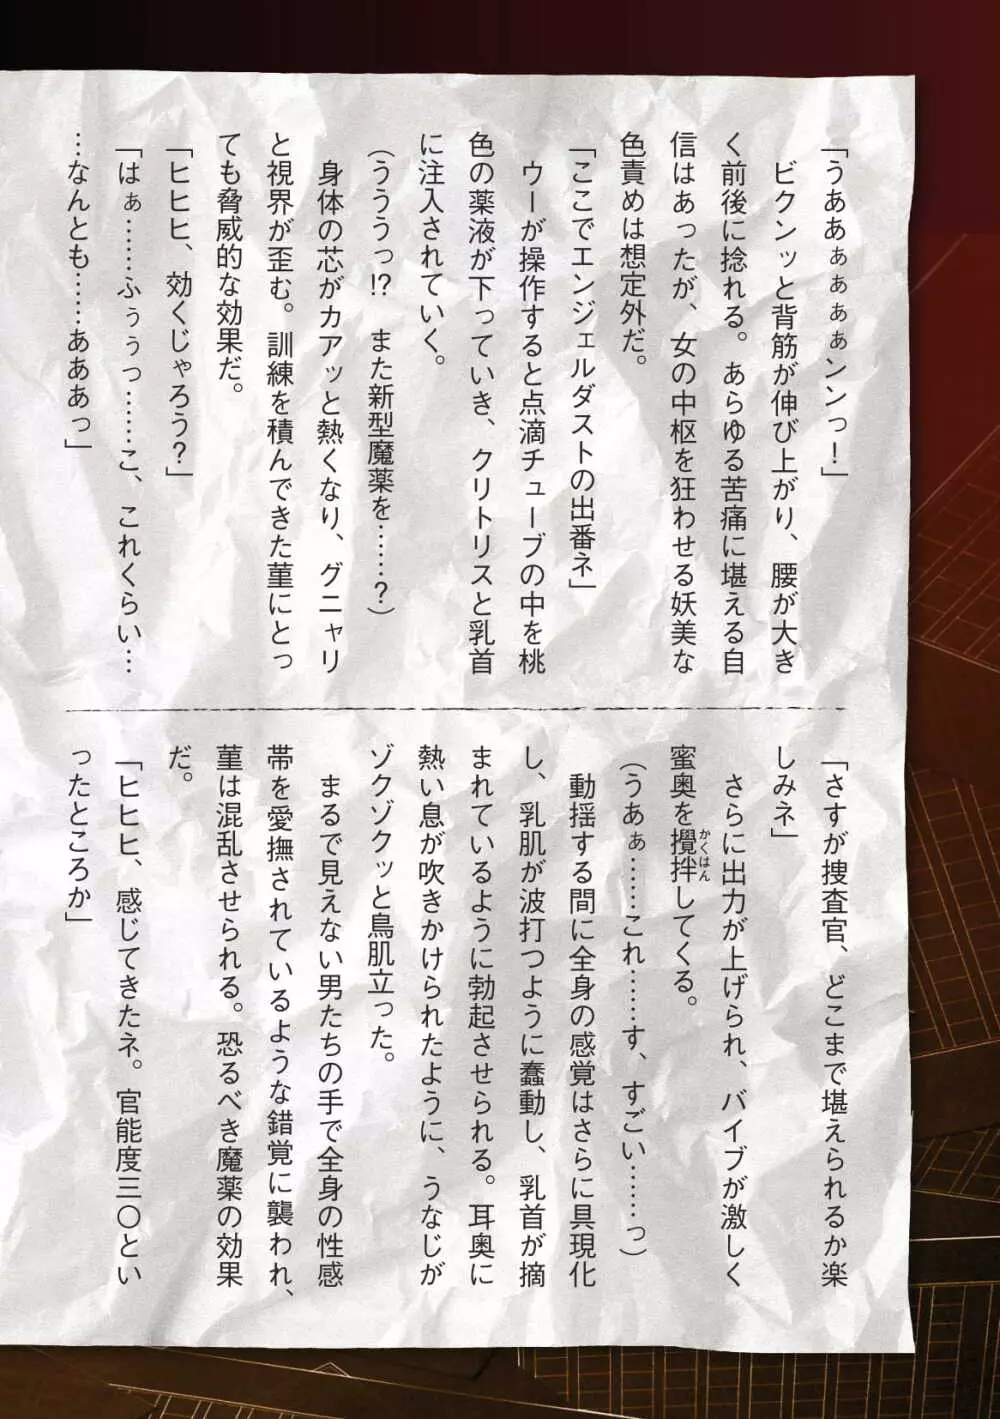 「うああぁぁぁぁンンっ！」
　ビクンッと背筋が伸び上がり、腰が大き
く前後に捻れる。あらゆる苦痛に堪える自
信はあったが、女の中枢を狂わせる妖美な
色責めは想定外だ。
「ここでエンジェルダストの出番ネ」
　ウーが操作すると点滴チューブの中を桃
色の薬液が下っていき、クリトリスと乳首
に注入されていく。
（うううっ!?　また新型魔薬を……？）
　身体の芯がカアッと熱くなり、グニャリ
と視界が歪む。訓練を積んできた菫にとっ
ても脅威的な効果だ。
「ヒヒヒ、効くじゃろう？」
「はぁ……ふぅうっ……こ、これくらい…
…なんとも……あああっ」
「さすが捜査官、どこまで堪えられるか楽
しみネ」
　さらに出力が上げられ、バイブが激しく
蜜奥を攪拌かくはんしてくる。
（うあぁ……これ……す、すごい……っ）
　動揺する間に全身の感覚はさらに具現化
し、乳肌が波打つように蠢動し、乳首が摘
まれているように勃起させられる。耳奥に
熱い息が吹きかけられたように、うなじが
ゾクゾクッと鳥肌立った。
　まるで見えない男たちの手で全身の性感
帯を愛撫されているような錯覚に襲われ、
菫は混乱させられる。恐るべき魔薬の効果
だ。
「ヒヒヒ、感じてきたネ。官能度三〇とい
ったところか」